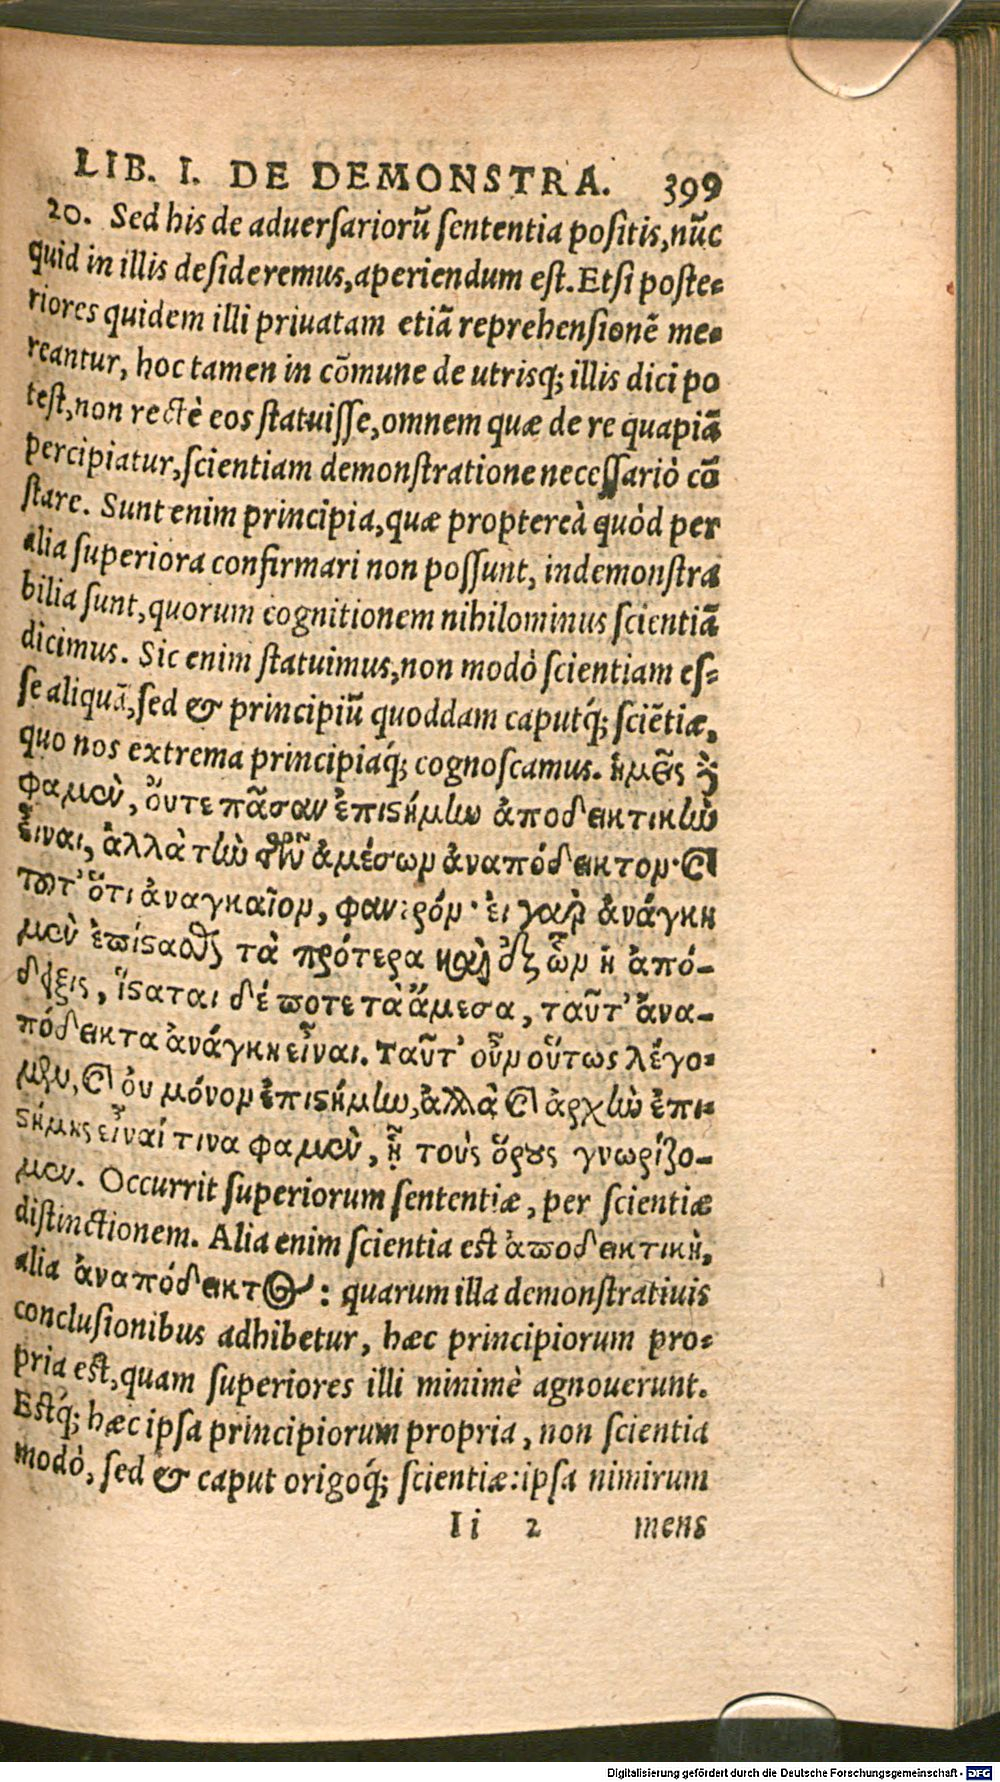 LIB. I. DE DEMONSTRA. 399
20. Sed his de aduersariorũ sententia positis, nũc
quid in illis desideremus, aperiendum est. Etsi poste-
riores quidem illi priuatam etiã reprehensionẽ me-
reantur, hoc tamen in cõmune de utrisq; illis dici po
test, non rectè eos statuisse, omnem quæ de re quapiã
percipiatur, scientiam demonstratione necessariò cõ
stare. Sunt enim principia, quæ propterea quòd per
alia superiora confirmari non possunt, indemonstra
bilia sunt, quorum cognitionem nihilominus scientiã
dicimus. Sic enim statuimus, non modò scientiam es-
se aliquã, sed & principiũ quoddam caputq́; sciẽtiæ,
quo nos extrema principiaq́; cognoscamus. ἡμεῖς δέ
φαμὲν, ὄυτε πᾶσαν ἐπιστήμην ἀποδεικτικὴν
εἶναι, ἀλλὰ τὴν τῶν ἀμέσων ἀναπόδεικτον· καὶ
τοῦτ' ὅτι ἀναγκαῖον, φανερόν· ἐι γὰρ ἀνάγκη
μὲν ἐπίστασθαι τὰ πρότερα καὶ ἐξ ὧν ἡ ἀπό-
δειξις, ἵσταται δέ ποτε τὰ ἄμεσα, ταῦτ' ἀνα-
πόδεικτα ἀνάγκη εἶναι. Ταῦτ' οὖν οὕτως λέγο-
μεν, καὶ ὀυ μόνον ἐπιστήμην, ἀλλὰ καὶ ἀρχὴν ἐπι-
στήμης εἶναί τινα φαμὲν, ᾗ τοὺς ὅρους γνωρίζο-
μεν. Occurrit superiorum sententiæ, per scientiæ
distinctionem. Alia enim scientia est ἀποδεικτικὴ,
alia ἀναπόδεικτος: quarum illa demonstratiuis
conclusionibus adhibetur, hæc principiorum pro-
pria est, quam superiores illi minimè agnouerunt.
Estq́; hæc ipsa principiorum propria, non scientia
modò, sed & caput origoq́; scientiæ: ipsa nimirum
Ii 2 mens
Digitalisierung gefördert durch die Deutsche Forschungsgemeinschaft - DFG